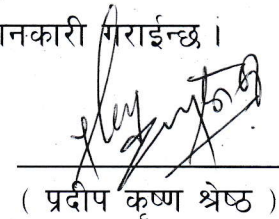 जानकारी गराईन्छ ।
( प्रदीप कृष्ण श्रेष्ठ )